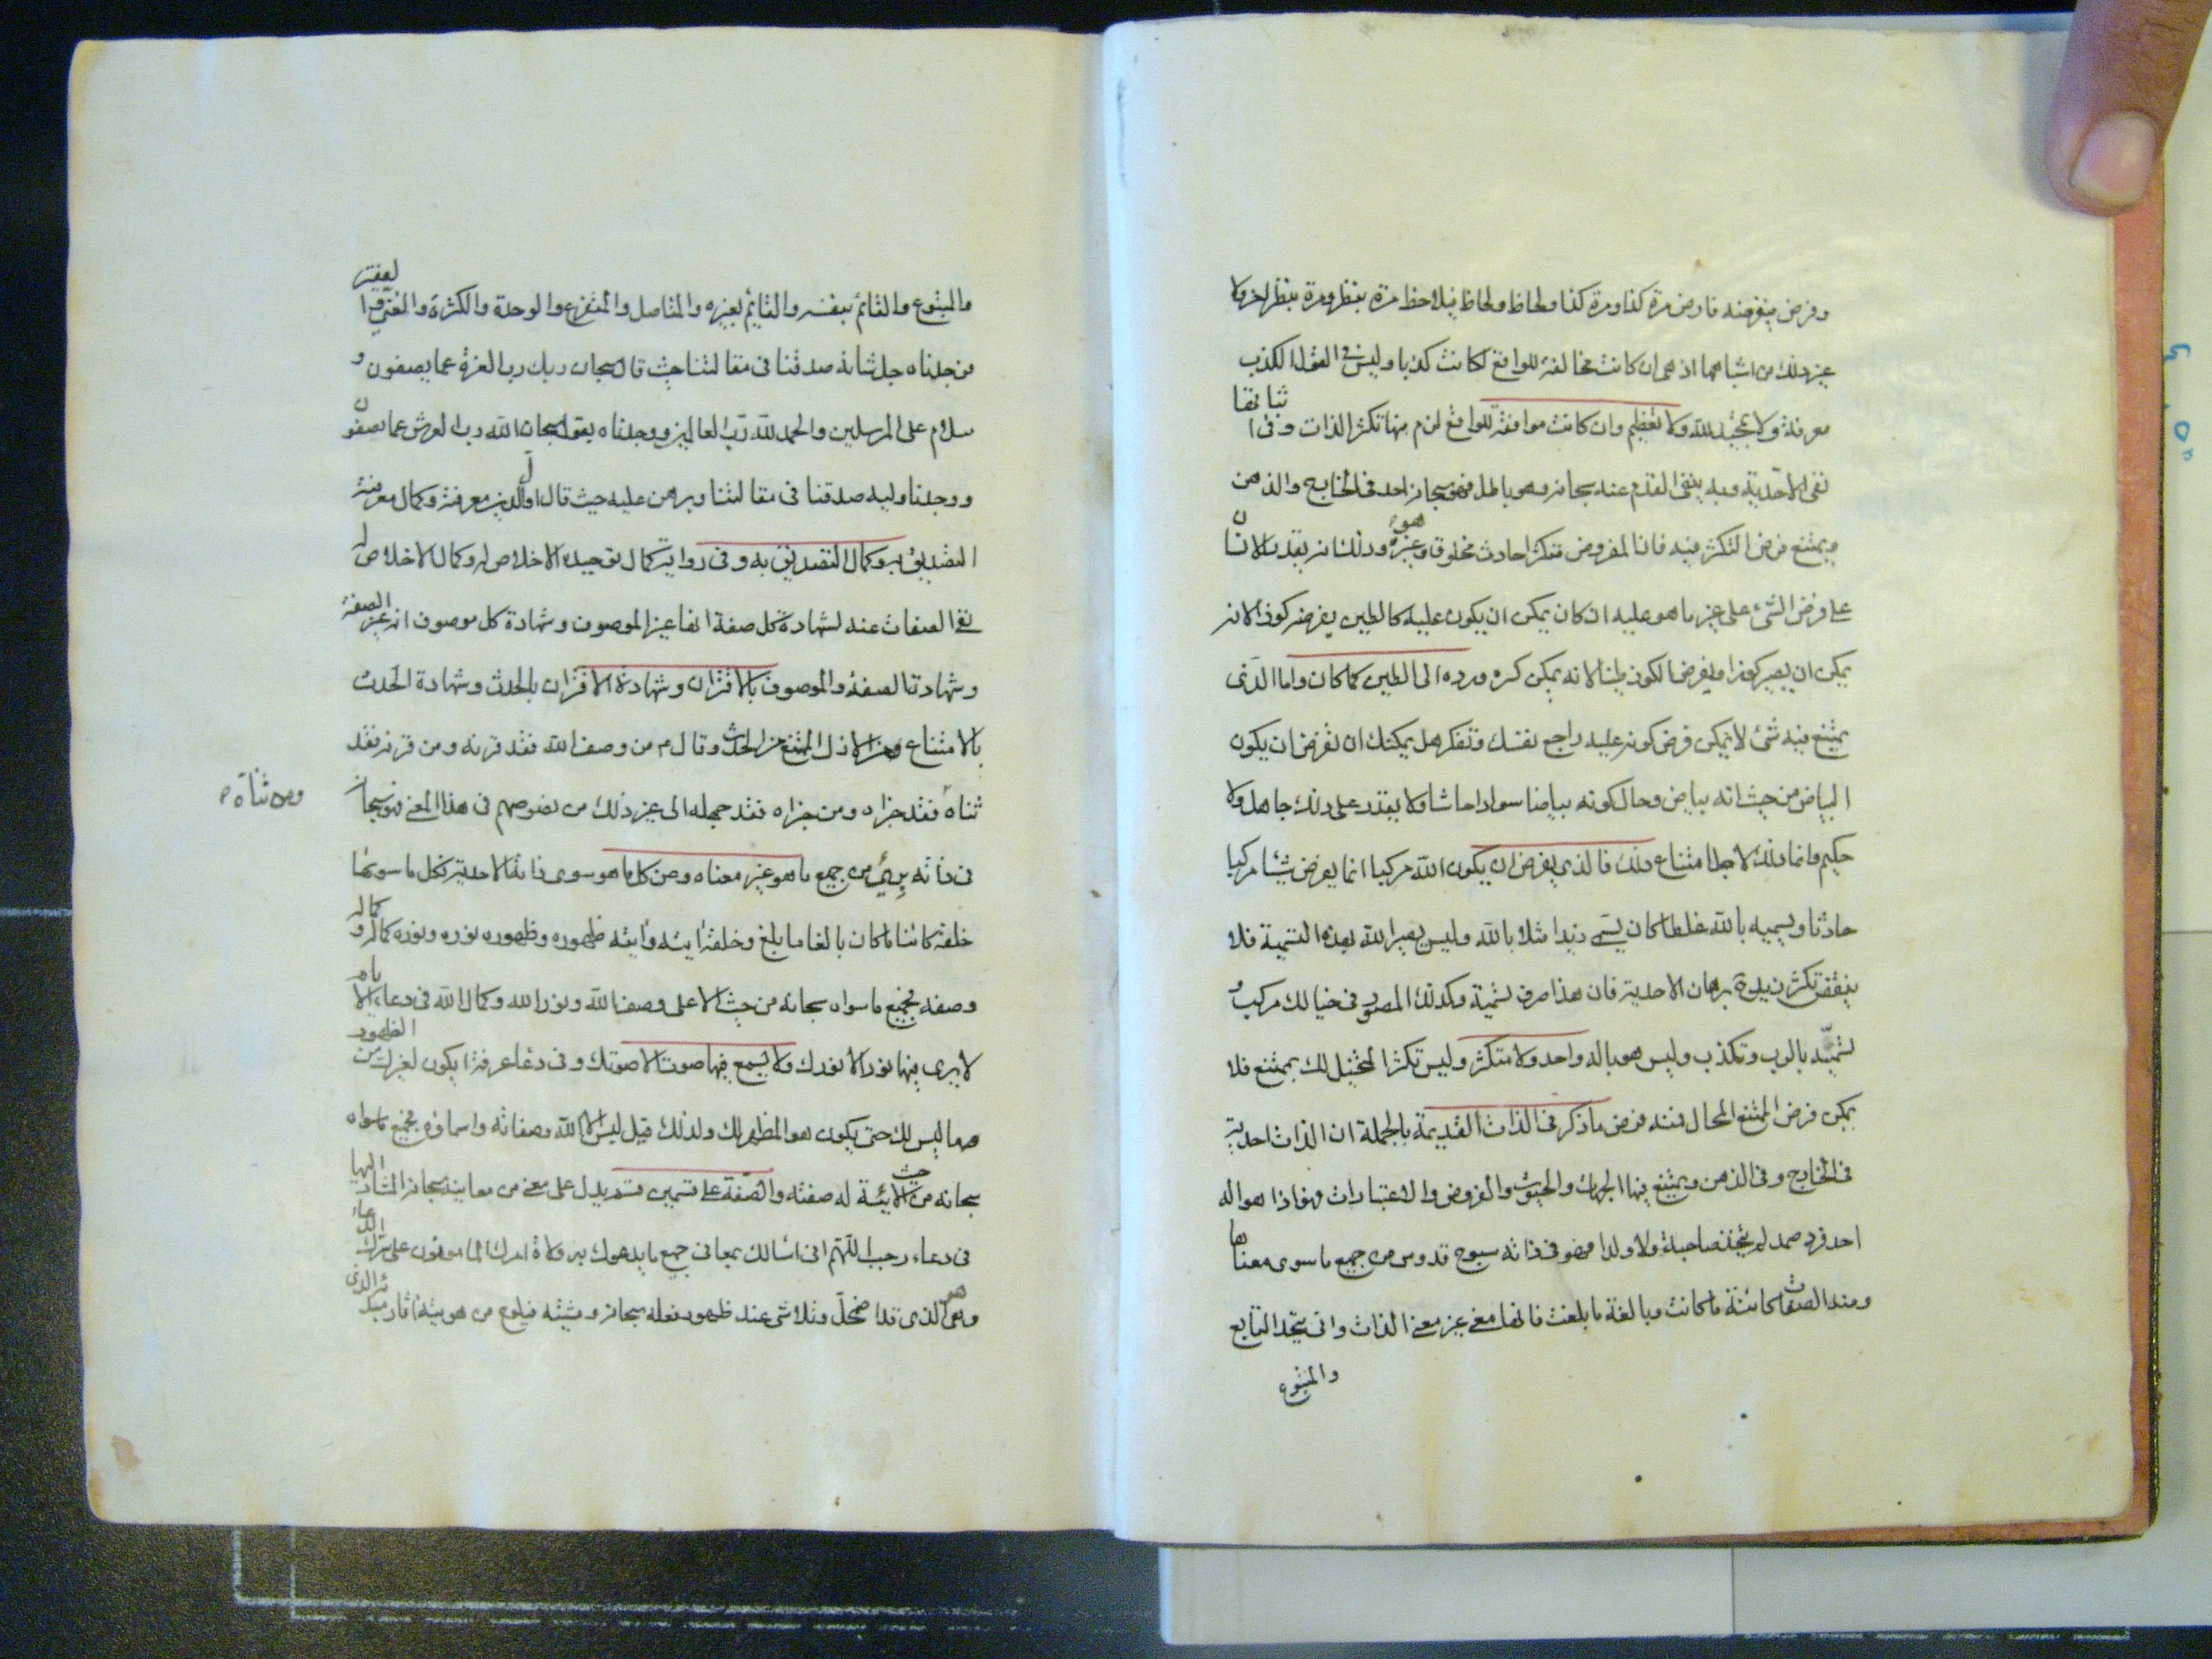 وفرض يفرضه فارض مرة كذا ومرة كذا ولحاظ ولحاظ فيلاحظ مرة بنظر ومرة بنظر اخر ولا
غير ذلك من اشباهها اذ هى ان كانت مخالفة للواقع لكانت كذبا وليس فى القول الكذب
معرفة ولا تمجيد لله ولا تعظيم وان كانت موافقة للواقع لزم منها تكثر الذات وفى اثباتها
نفى الاحدية وبه ينفى القدم عنه سبحانه وهو باطل فهو سبحانه احد فى الخارج والذهن
ويمتنع فرض التكثر فيه فان المفروض متكثرا حادث مخلوق وهو غيره وذلك انه يقدر الانسان
على فرض الشئ على غير ما هو عليه ان كان يمكن ان يكون عليه كالطين يفرضه كوزا لانه
يمكن ان يصير كوزا ويفرض الكوز طينا لانه يمكن كسره ورده الى الطين كما كان واما الذى
يمتنع فيه شئ لا يمكن فرض كونه عليه راجع نفسك وتفكر هل يمكنك ان تفرض ان يكون
البياض من حيث انه بياض وحال كونه بياضا سوادا حاشا ولا يقدر على ذلك جاهل ولا
حكيم وانما ذلك لاجل امتناع ذلك فالذى يفرض ان يكون الله مركبا انما يفرض شيئا مركبا
حادثا ويسميه بالله غلطا كان يسمى زيدا مثلا بالله وليس يصير الله بهذه التسمية فلا
ينتقض تكثر زيد برهان الاحدية فان هذا صرف تسمية وكذلك المصور فى خيالك مركب و
تسميه بالرب وتكذب وليس هو باله واحد ولا متكثر وليس تكثر المتخيل لك بممتنع فلا
يمكن فرض الممتنع المحال فيه فرض ما ذكر فى الذات القديمة بالجملة ان الذات احدية
فى الخارج وفى الذهن ويمتنع فيها الجهات والحيوث والفروض والاعتبارات فهو اذا هو اله
احد فرد صمد لم يتخذ صاحبة ولا ولدا فهو فى ذاته سبوح قدوس من جميع ما سوى معناها
ومنه الصفات كائنة ما كانت وبالغة ما بلغت فانها معنى غير معنى الذات وانى يتحد التابع
والمتبوع
والمتبوع والقائم بنفسه والقايم بغيره والمتاصل والمتفرع والوحدة والكثرة والغنى والفقر
فوجدناه جل شانه صدقنا فى مقالتنا حيث قال سبحان ربك رب العزة عما يصفون و
سلام على المرسلين والحمد لله رب العالمين ووجدناه يقول سبحان الله رب العرش عما يصفون
ووجدنا وليه صدقنا فى مقالتنا وبرهن عليه حيث قال اول الدين معرفته وكمال معرفته
التصديق به وكمال التصديق به وفى رواية كمال توحيده الاخلاص له وكمال الاخلاص له
نفى الصفات عنه لشهادة كل صفة انها غير الموصوف وشهادة كل موصوف انه غير الصفة
وشهادة الصفة والموصوف بالاقتران وشهادة الاقتران بالحدث وشهادة الحدث
بالامتناع من الازل الممتنع من الحدث وقال ع من وصف الله فقد قرنه ومن قرنه فقد
ثناه فقد جزاه ومن جزاه فقد جهله الى غير ذلك من نصوصهم فى هذا المعنى فهو سبحانه
ومن ثناه
فى ذاته برئ من جميع ما هو غير معناه ومن كل ما هو سوى ذاته الاحدية فكل ما سواها
خلقه كائنا ما كان بالغا ما بلغ وخلقه ايته وايته ظهوره وظهوره نوره ونوره كماله وكماله
وصفه فجميع ما سواه سبحانه من حيث الاعلى وصف الله ونور الله وكمال الله فى دعاء الايام
لا يرى فيها نور الا نورك ولا يسمع فيها صوت الا صوتك وفى دعاء عرفة ايكون لغيرك من الظهور
ما ليس لك حتى يكون هو المظهر لك ولذلك قيل ليس الا الله وصفاته واسماؤه فجميع ما سواه
سبحانه من حيث الاية له صفته والصفة على قسمين قسم يدل على معنى من معانيه سبحانه المشار اليها
فى دعاء رجب اللهم انى اسالك بمعانى جميع ما يدعوك به ولاة امرك المامونون على سرك الدعاء
وهو الذى قد اضمحل وتلاشى عند ظهور فعله سبحانه ومشيته فيلوح من هويته اثار مبدئه الذى هو